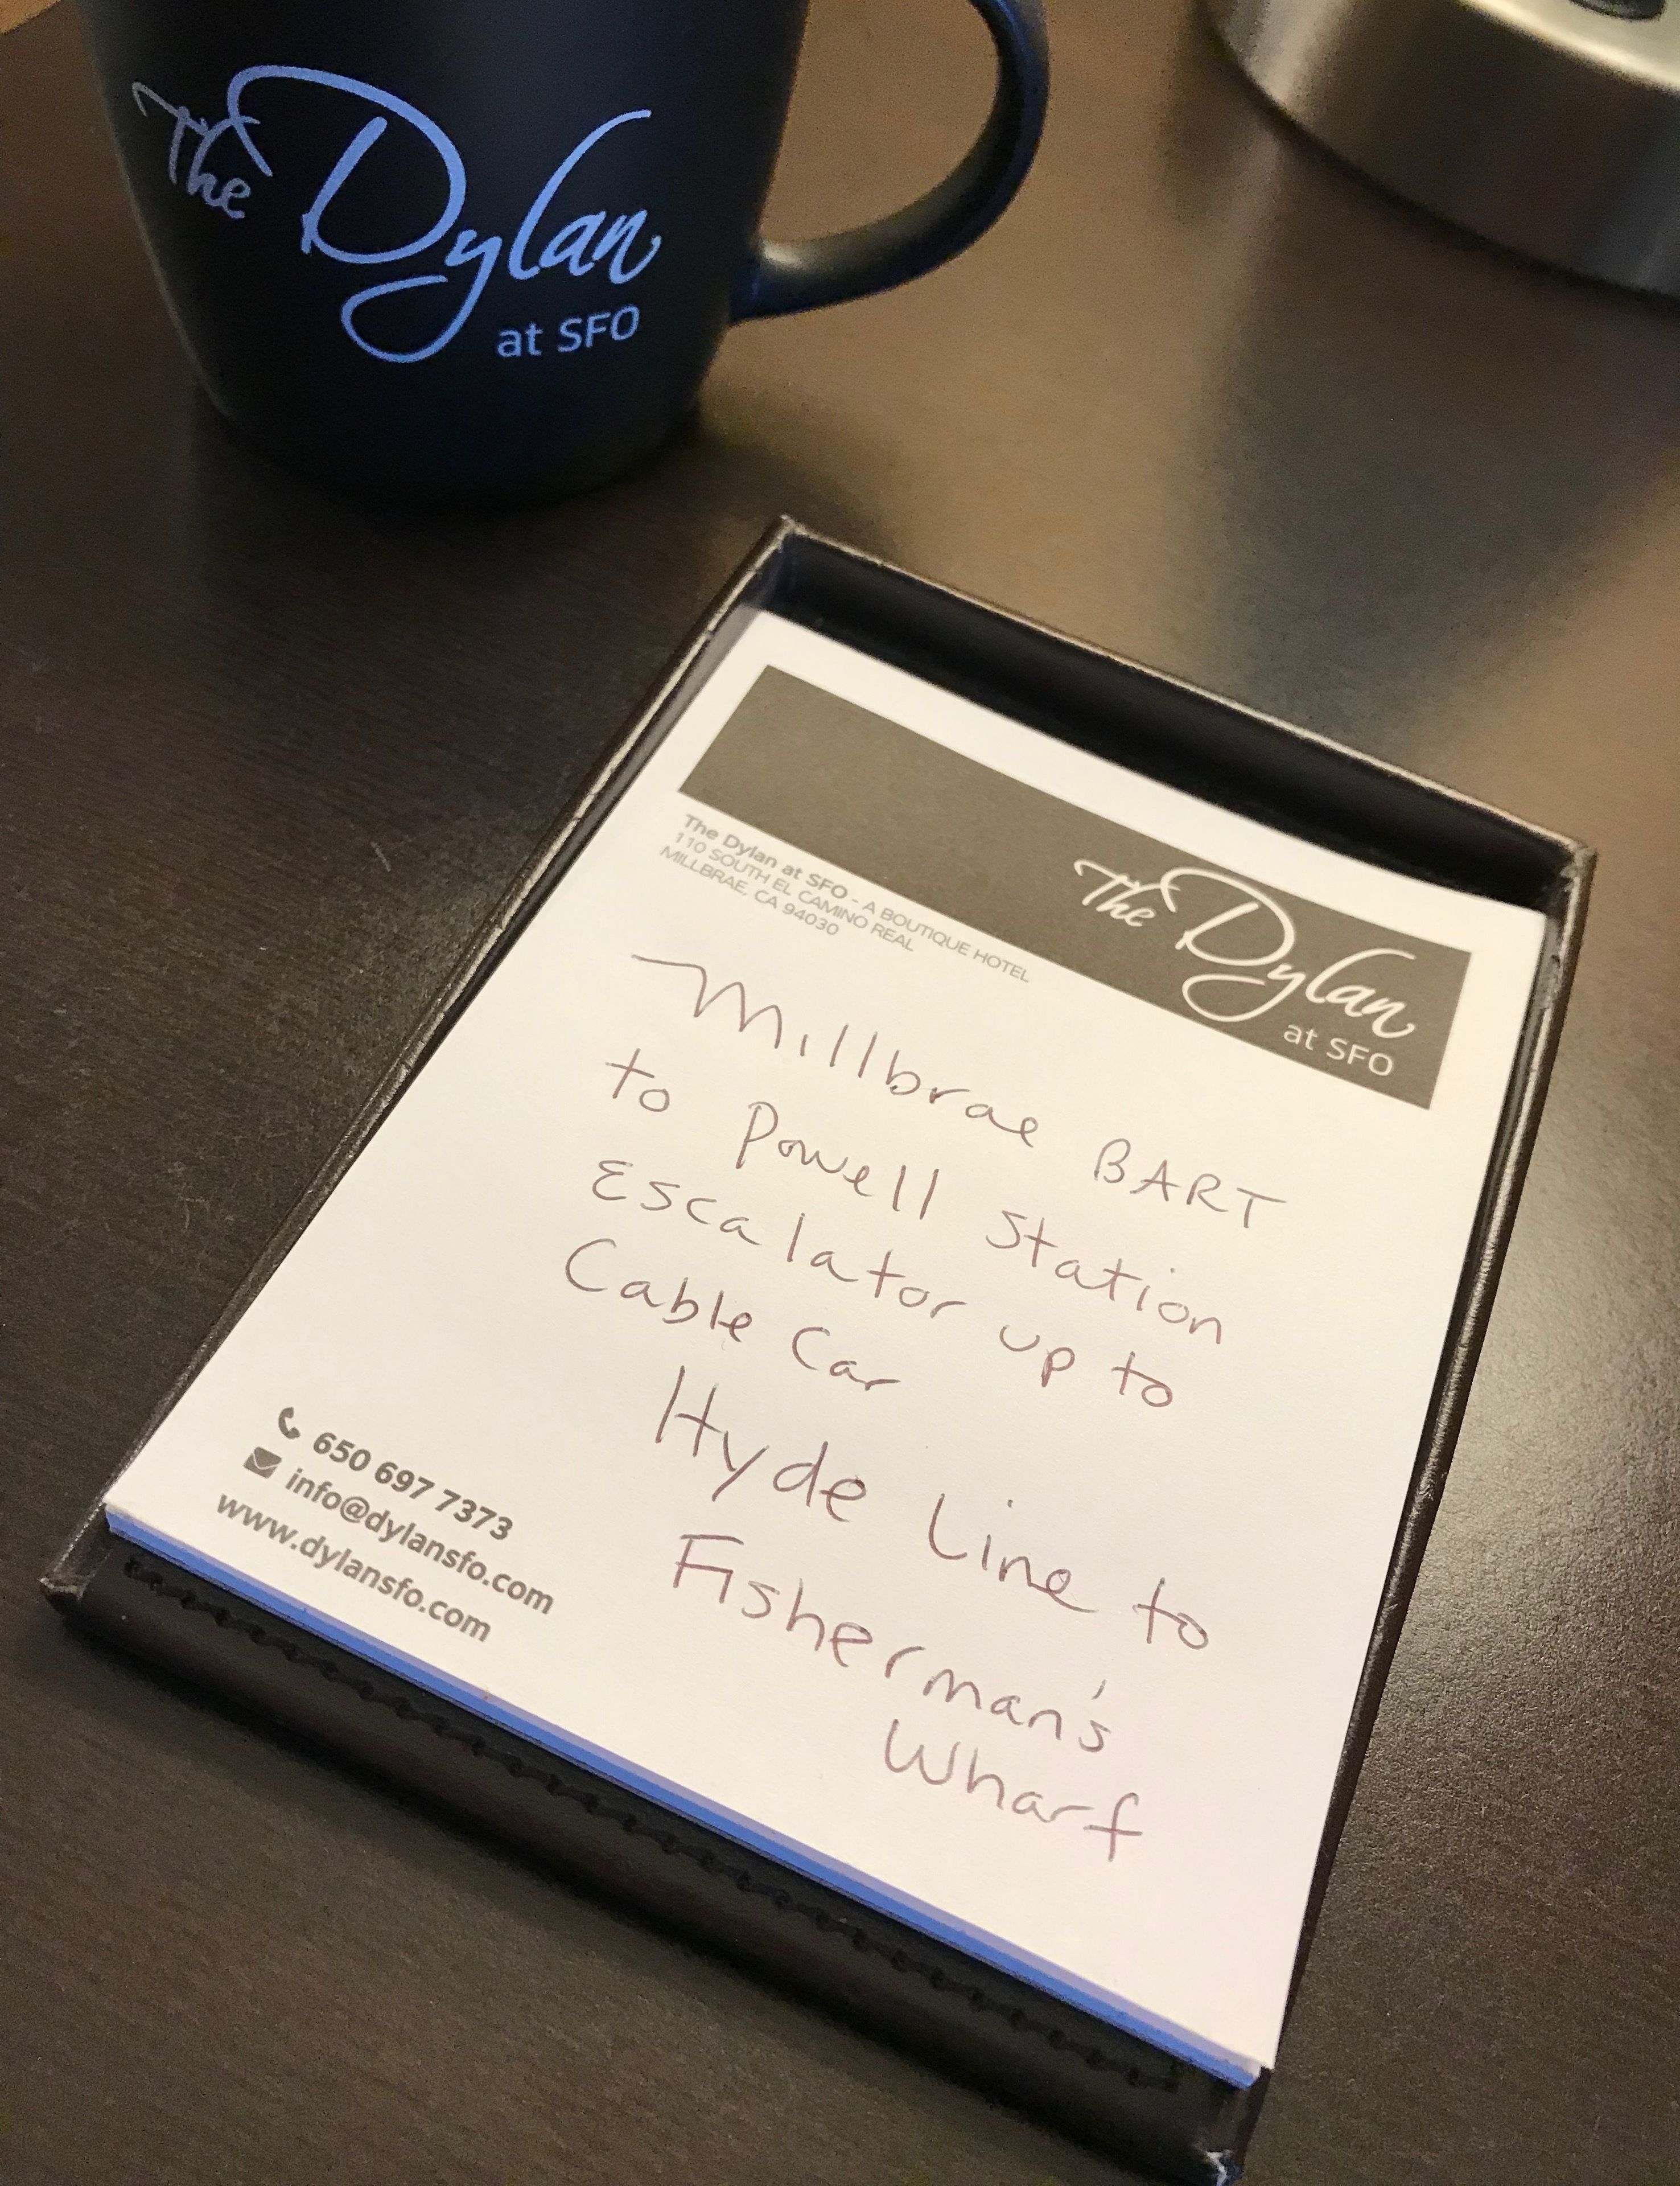 The Dylan
at SFO
The Dylan
at SFO
The Dylan at SFO - A BOUTIQUE HOTEL
110 SOUTH EL CAMINO REAL
MILLBRAE, CA 94030
Millbrae BART
to Powell Station
Escalator up to
Cable Car
Hyde Line to
Fisherman's
Wharf
650 697 7373
info@dylansfo.com
www.dylansfo.com